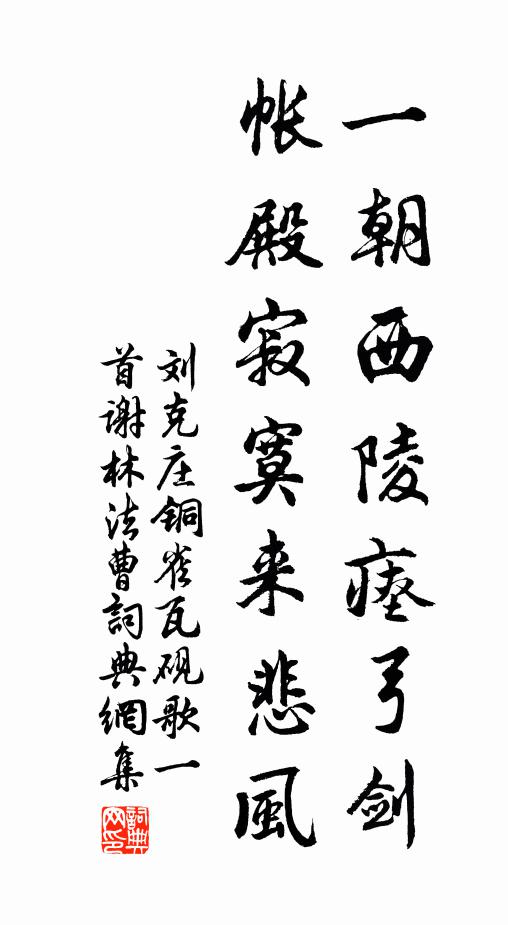 一朝西陵瘗弓剑
帐殿寂寞来悲風
刘克庄铜雀瓦砚歌一
首谢林法曹詞典網集
詞典
网印